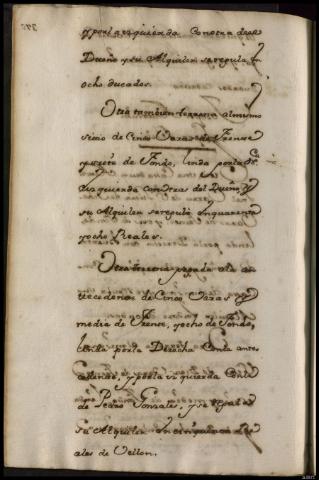 y por la esquierda Con otra de el
Dueño y su Alquiler se regula en
ocho ducados.
Otra tambien terrena al mismo
sitio de Cinco Varas de Frense
y siete de Fondo, linda por la
esquierda con otras del Dueño, y
su Alquiler se reguló En quarenta
y ocho Reales.
Otra terrena pegada a la an
tecedente de Cinco Varas y
media de Frense, y ocho de Fondo,
linda por la Derecha Con la ante
cedense, y por la esquierda Con
de Pedro Gonzales, y se regula
su Alquiler En cinquenta Rea
ales de Vellon.